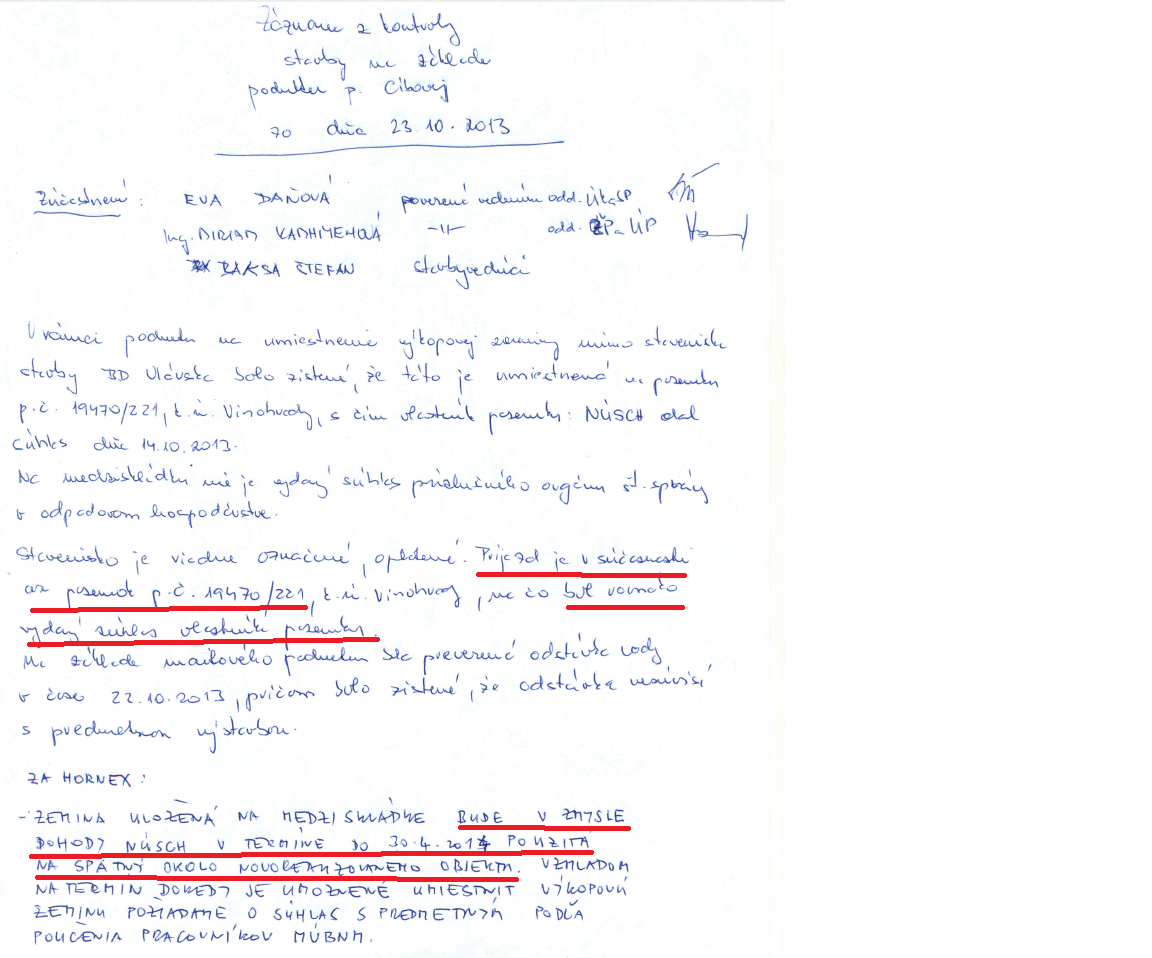 Záznam z kontroly
stavby na základe
podnetu p. Cibovej
zo dňa 23.10.2013
Zúčastnení: EVA DAŇOVÁ poverená vedením odd. ÚKaSP
Ing. MIRIAM -II- odd. ŽP a ÚP
BAKSA ŠTEFAN stavbyvedúci
V rámci podnetu na umiestnenie výkopovej zeminy mimo staveniska
stavby BD Vlárska bolo zistené, že táto je umiestnená na pozemku
p.č. 19470/221, k.ú. Vinohrady, s čím vlastník pozemku: NÚSCH dal
súhlas dňa 14.10.2013.
Na medziskládku nie je vydaný súhlas príslušného orgánu št. správy
v odpadovom hospodárstve.
Stavenisko je riadne označené, oplotené. Príjazd je v súčasnosti
cez pozemok p.č. 19470/221, k.ú. Vinohrady, na čo bol rovnako
vydaný súhlas vlastníka pozemku.
Na základe mailového podnetu bola preverená odstávka vody
v čase 22.10.2013, pričom bolo zistené, že odstávka nesúvisí
s predmetnou výstavbou.
ZA HORNEX:
- ZEMINA ULOŽENÁ NA MEDZISKLÁDKE BUDE V ZMYSLE
DOHODY NÚSCH V TERMÍNE DO 30.4.2014 POUŽITÁ
NA SPÄTNÝ OKOLO NOVOREALIZOVANÉHO OBJEKTU. VZHĽADOM
NA TERMIN DOKEDY JE UMOŽNENÉ UMIESTNIŤ VÝKOPOVÚ
ZEMINU POŽIADAME O SÚHLAS S PREDMETNÝM PODĽA
POUČENIA PRACOVNÍKOV MÚBNM.